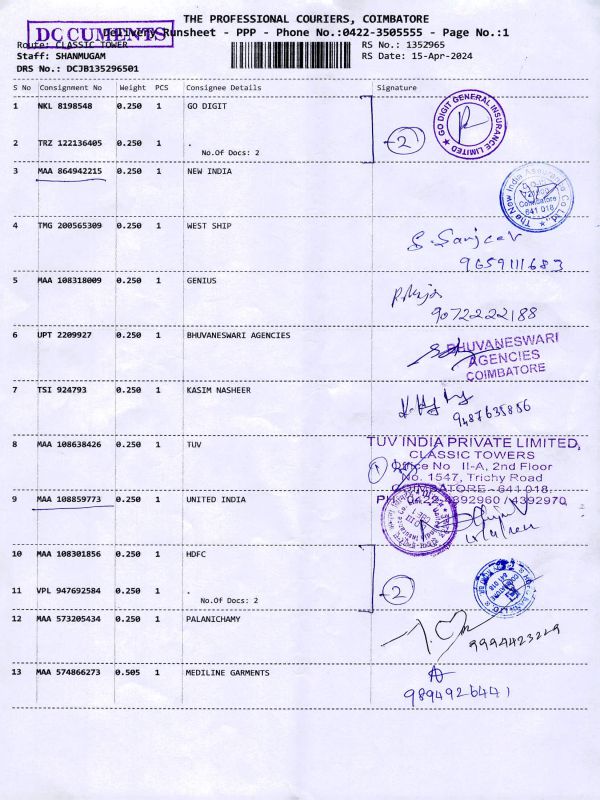 THE PROFESSIONAL COURIERS, COIMBATORE
DOCUMENTS
Delivery Runsheet - PPP - Phone No.:0422-3505555 - Page No.:1
Route: CLASSIC TOWER
RS No.: 1352965
Staff: SHANMUGAM
RS Date: 15-Apr-2024
DRS No.: DCJB135296501
S No Consignment No Weight PCS Consignee Details Signature
1 NKL 8198548 0.250 1 GO DIGIT
GO DIGIT GENERAL INSURANCE LIMITED
2
2 TRZ 122136405 0.250 1 .
No.Of Docs: 2
3 MAA 864942215 0.250 1 NEW INDIA
The New India Assurance Co Ltd
Coimbatore
641 018
4 TMG 200565309 0.250 1 WEST SHIP
S. Sanjeev
9659111683
5 MAA 108318009 0.250 1 GENIUS
9072222188
6 UPT 2209927 0.250 1 BHUVANESWARI AGENCIES
BHUVANESWARI
AGENCIES
COIMBATORE
7 TSI 924793 0.250 1 KASIM NASHEER
9487635856
8 MAA 108638426 0.250 1 TUV
TUV INDIA PRIVATE LIMITED,
CLASSIC TOWERS
1
Office No II-A, 2nd Floor
No. 1547, Trichy Road
COIMBATORE - 641 018.
PH: 0422-4392960 / 4392970
9 MAA 108859773 0.250 1 UNITED INDIA
10 MAA 108301856 0.250 1 HDFC
2
11 VPL 947692584 0.250 1 .
No.Of Docs: 2
12 MAA 573205434 0.250 1 PALANICHAMY
9994423229
13 MAA 574866273 0.505 1 MEDILINE GARMENTS
9894926441